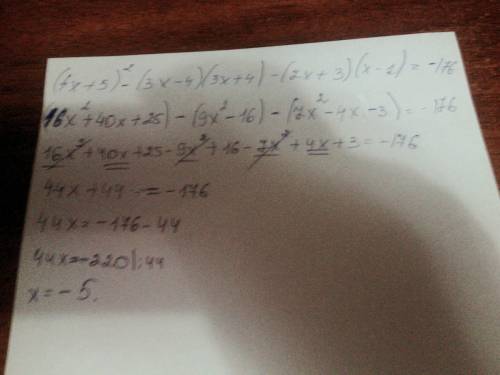 (4x+5)² - (3x-4)(3x+4) - (7x+3)(x-1) = -176
(16x²+40x+25) - (9x²-16) - (7x²-4x-3) = -176
16x²+40x+25-9x²+16-7x²+4x+3=-176
44x+44 = -176
44x=-176-44
44x=-220|:44
x=-5.